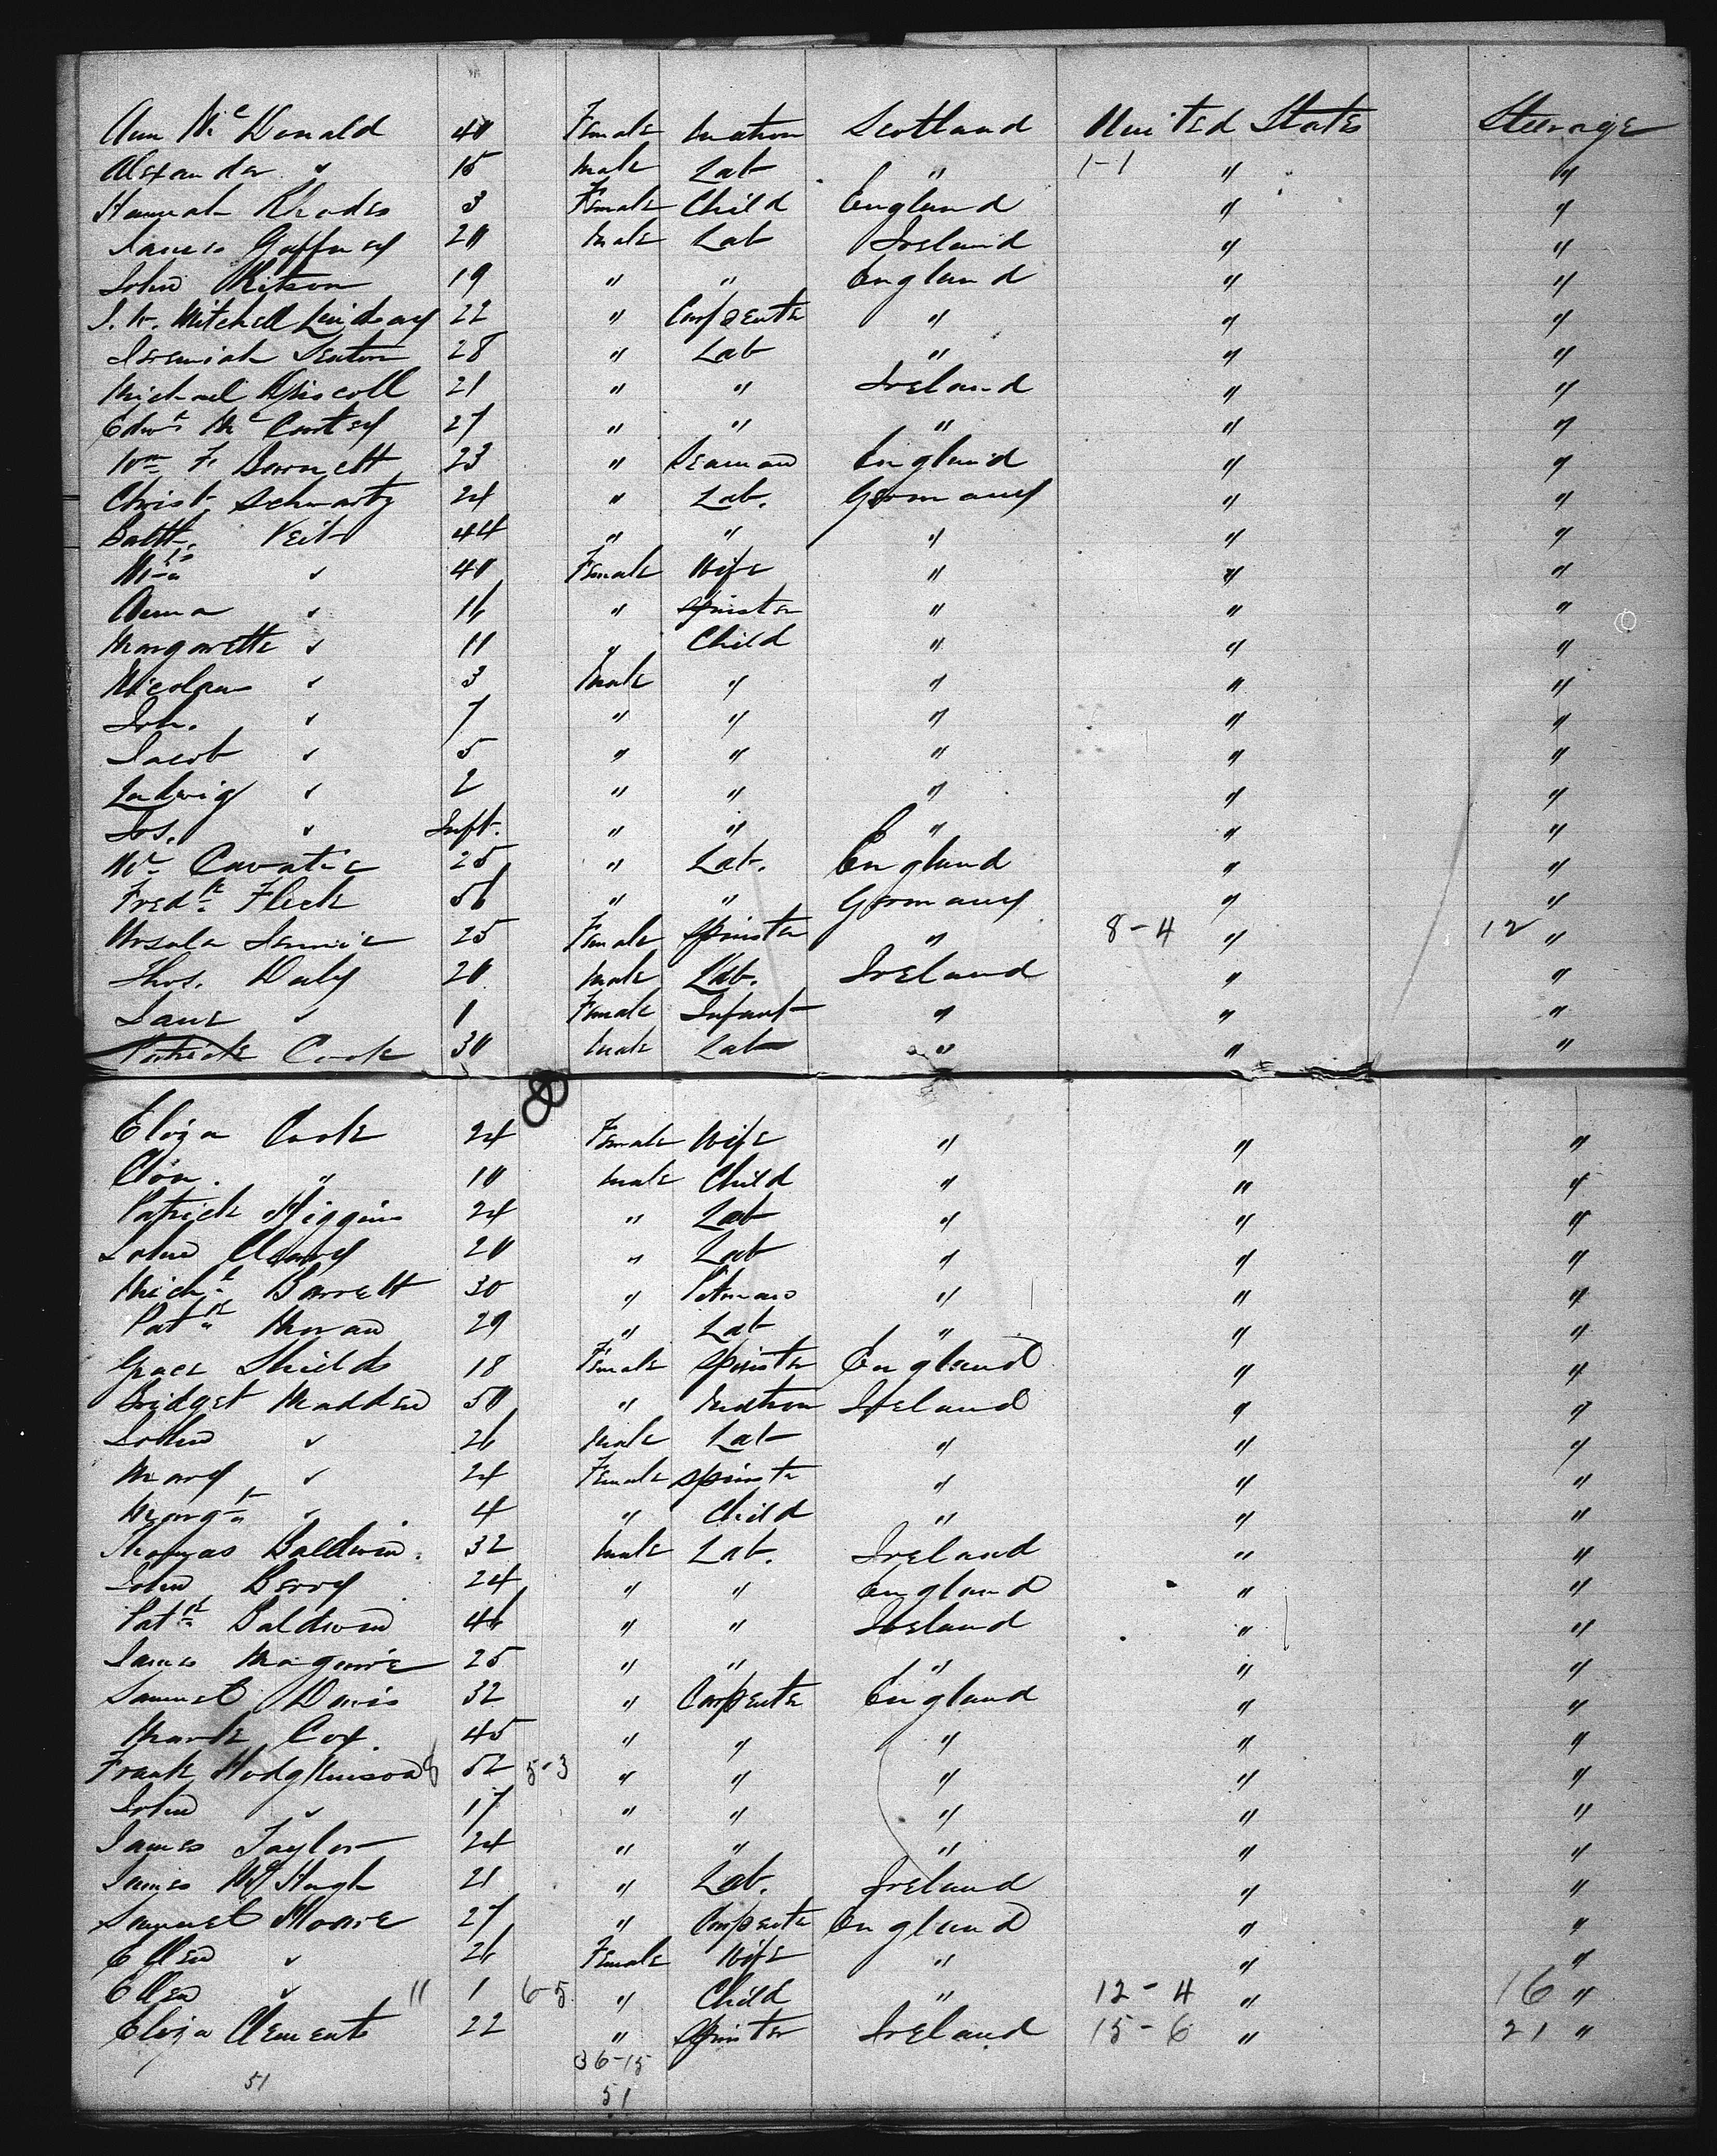 Ann McDonald 40 Female Matron Scotland United States Steerage
Alexander " 15 Male Lab " 1-1 " "
Hannah Rhodes 3 Female Child England " "
James Gaffney 20 Male Lab Ireland " "
John Kitson 19 " " England " "
J. W. Mitchell Lindsay 22 " Carpenter " " "
Jeremiah Senton 28 " Lab " " "
Michael Driscoll 21 " " Ireland " "
Edwd McCartey 27 " " " " "
Wm F. Barnett 23 " Seaman England " "
Christ. Schwartz 24 " Lab. Germany " "
Balth. Veit 44 " " " " "
" 40 Female Wife " " "
Anna " 16 " Spinster " " "
Margarettha " 11 " Child " " "
Nicolaus " 3 Male " " " "
Joh. " 7 " " " " "
Jacob " 5 " " " " "
Ludwig " 2 " " " " "
Jos. " Inft. " " " " "
Wm 25 " Lab. England " "
Fredk Fleck 56 " " Germany " "
Ursula 25 Female Spinster " 8-4 " 12 "
Thos. Daly 20 Male Lab. Ireland " "
Jane " 1 Female Infant " " "
Patrick Cook 30 Male Lab " " "
Eliza Cook 24 Female Wife " " "
" 10 Male Child " " "
Patrick Higgins 24 " Lab " " "
John Cleary 20 " Lab " " "
Michl Barrett 30 " Pitman " " "
Patk Moran 29 " Lab " " "
Grace Shields 18 Female Spinster England " "
Bridget Madden 50 " Matron Ireland " "
John " 26 Male Lab " " "
Mary " 24 Female Spinster " " "
Margt " 4 " Child " " "
Thomas Baldwin. 32 Male Lab. Ireland " "
John Berry 24 " " England " "
Patk Baldwin 46 " " Ireland " "
James Maguire 25 " " " " "
Samuel Davis 32 " Carpenter England " "
Mark Cox. 45 " " " " "
Frank Hodgkinson 8 52 5-3 " " " " "
John " 17 " " " " "
James Taylor 24 " " " " "
James McHugh 21 " Lab. Ireland " "
Samuel Moore 27 " Carpenter England " "
Ellen " 26 Female Wife " " "
Ellen " 11 1 6-5 " Child " 12-4 " 16 "
Eliza Clements 22 " Spinster Ireland 15-6 " 21 "
36-15
51 51